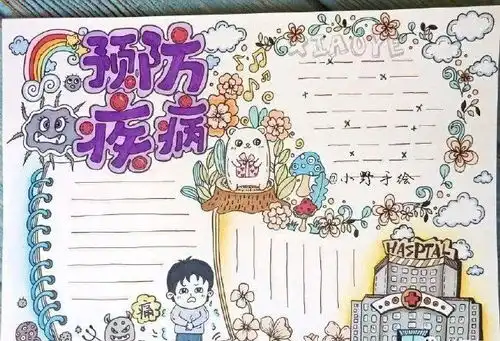 预防
疾病
XIAOYE
@小野手绘
HASPTAL
痛